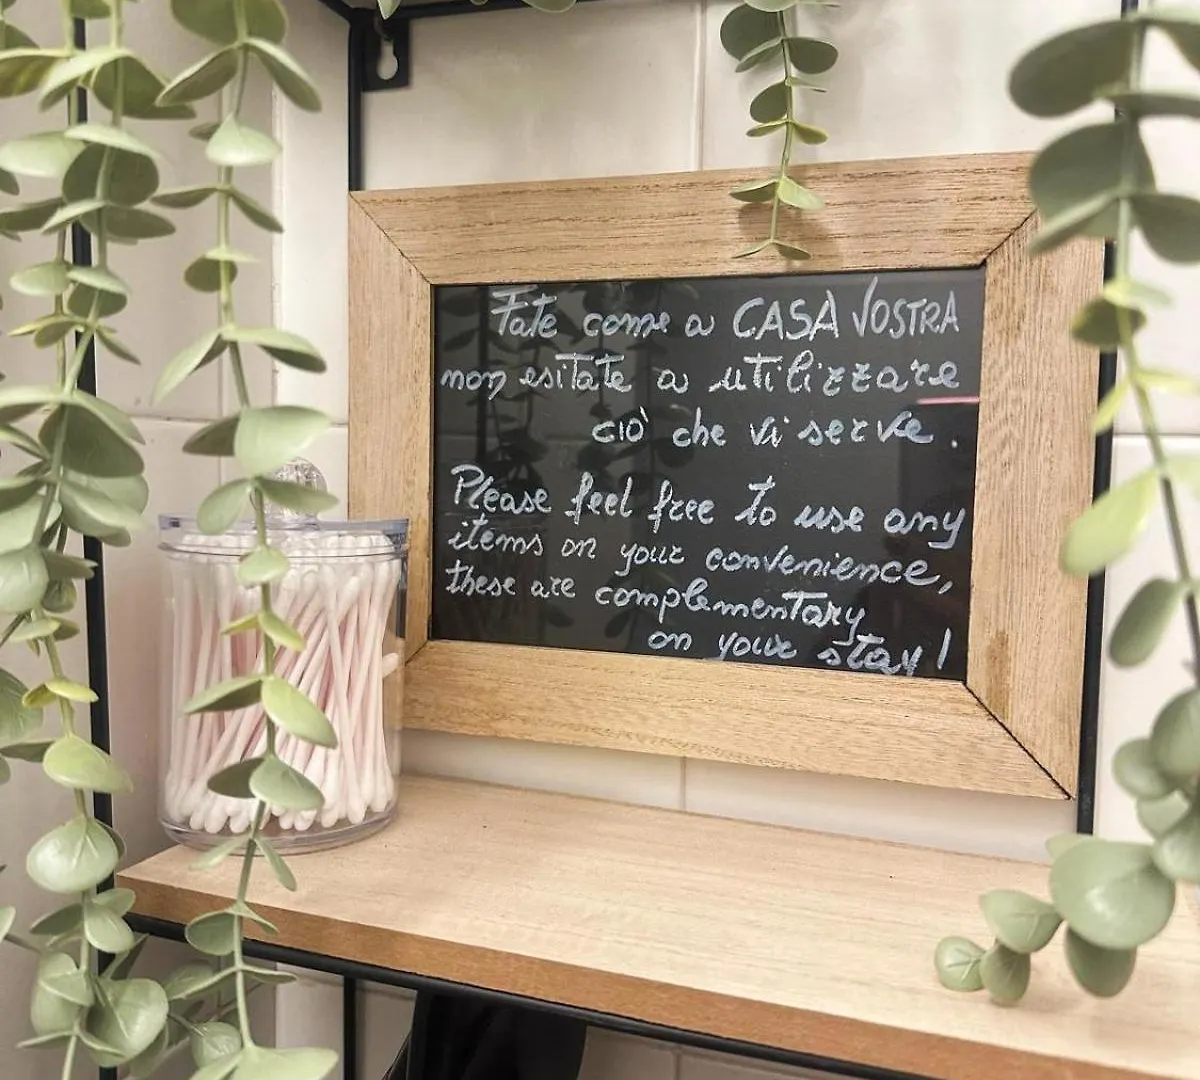 Fate come a CASA VOSTRA
non esitate a utilizzare
ciò che vi serve.
Please feel free to use any
items on your convenience,
these are complementary
on your stay!